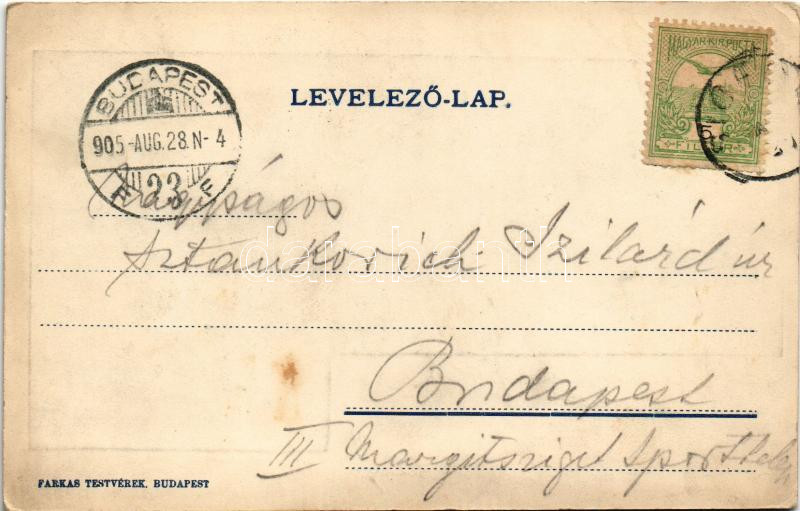 LEVELEZŐ-LAP.
MAGYAR KIR. POSTA
5
FILLÉR
BUDAPEST
905-AUG.28.N-4
23
Nagyságos
Sztankovich Szilárd úr
darabanth
Budapest
III Margitsziget Sporttelep
FARKAS TESTVÉREK, BUDAPEST